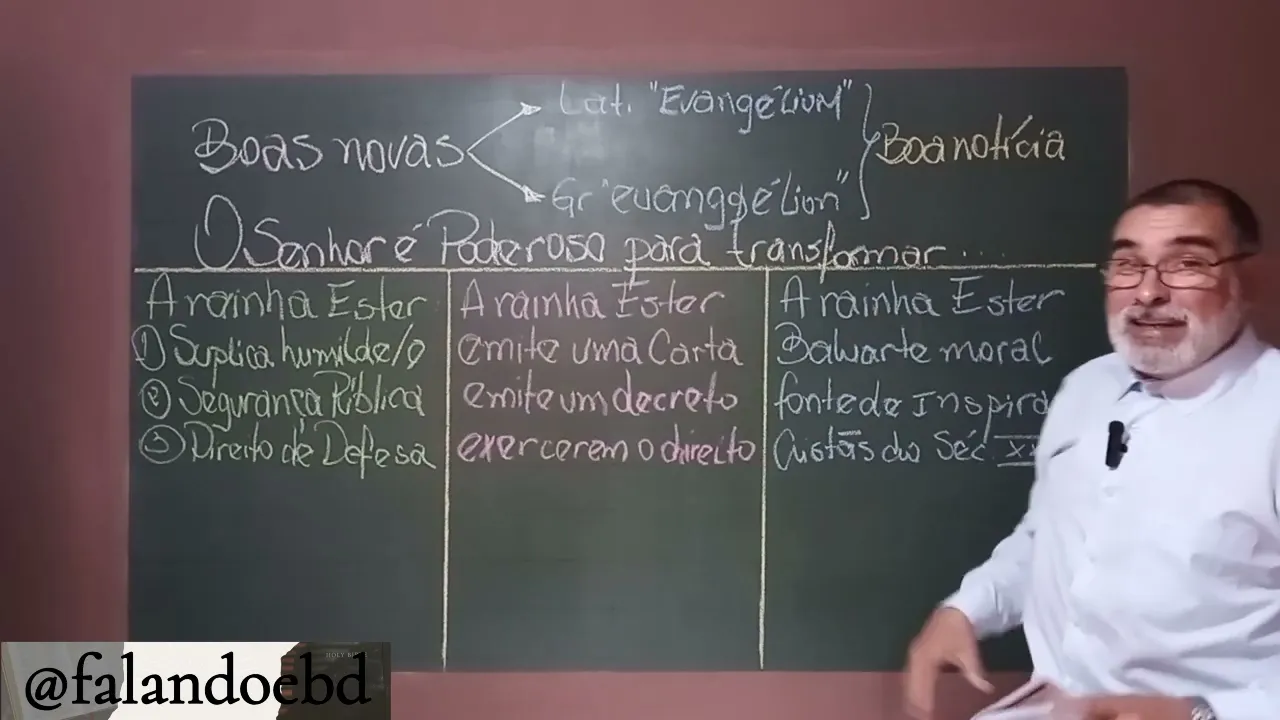 Lat. "Evangélium"
Boas novas
Boa notícia
Gr "evanggélion"
O Senhor é Poderoso para transformar ....
A rainha Ester
① Suplica humilde/e
② Segurança Pública
③ Direito de Defesa
A rainha Ester
emite uma Carta
emite um decreto
exercerem o direito
A rainha Ester
Baluarte moral
fonte de Inspira
Cristãs do Séc.
HOLY BI
@falandoebd